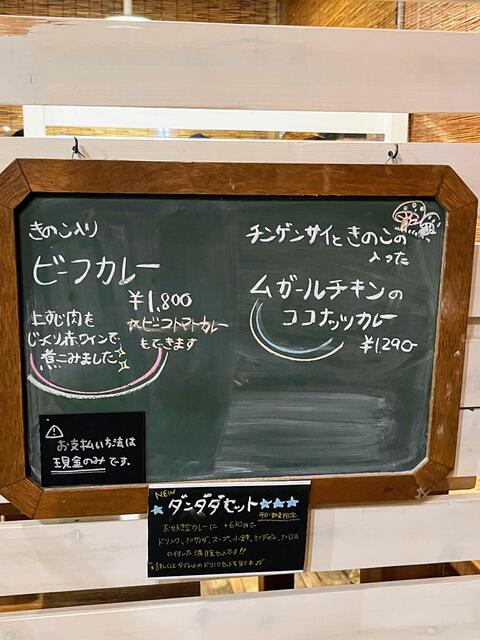 きのこ入り
ビーフカレー
¥1,800
上すじ肉を
じっくり赤ワインで
煮こみました
☆ビーフトマトカレー
もできます
チンゲンサイときのこの
入った
ムガールチキンの
ココナッツカレー
¥1,290-
お支払い方法は
現金のみです。
NEW
ダンダダセット
お好きなカレーに +630円で
ドリンク、ミニサラダ、スープ、
の付いた満腹セットです!!